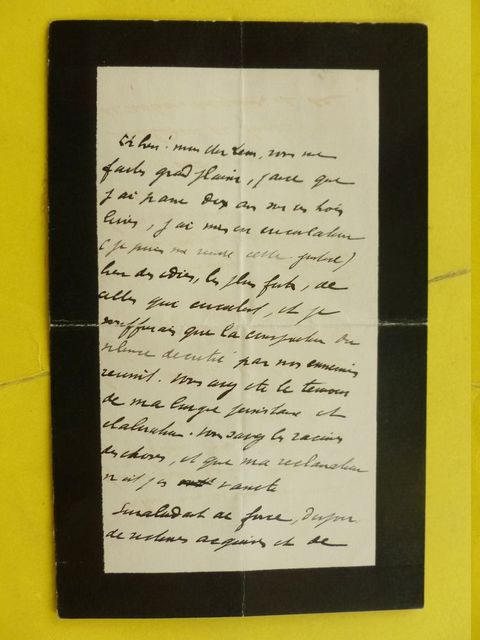 Eh bien! mon cher Léon, vous me
faites grand plaisir, parce que
j'ai passé dix ans sur ces trois
livres, j'ai mis en circulation
(je puis me rendre cette justice)
bien des idées, les plus forts, de
celles qui circulent, et je
souffrirais que la conspiration du
silence décrétée par nos ennemis
réussit. Vous avez été le témoin
de ma longue persistance et
élaboration. Vous savez les racines
des choses, et que ma réclamation
n'est pas vanité
de force,
de victoires acquises et de